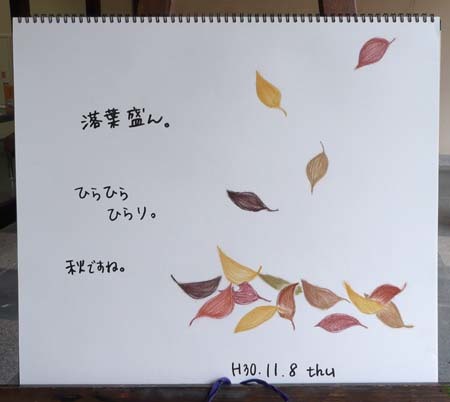 落葉盛ん。
ひらひら
ひらり。
秋ですね。
H30.11.8 thu